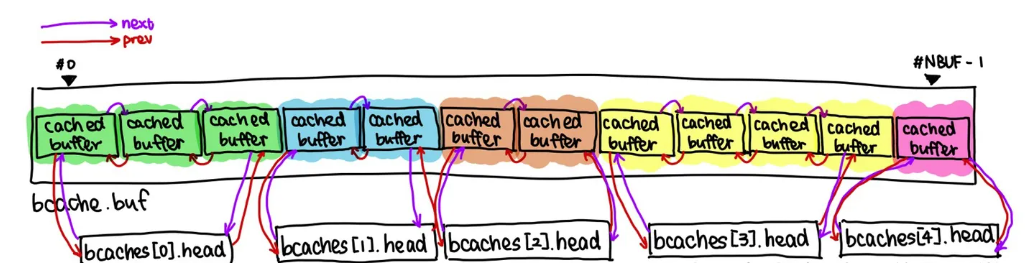 next
prev
#0
#NBUF-1
cached buffer
cached buffer
cached buffer
cached buffer
cached buffer
cached buffer
cached buffer
cached buffer
cached buffer
cached buffer
cached buffer
cached buffer
bcache.buf
bcaches[0].head
bcaches[1].head
bcaches[2].head
bcaches[3].head
bcaches[4].head